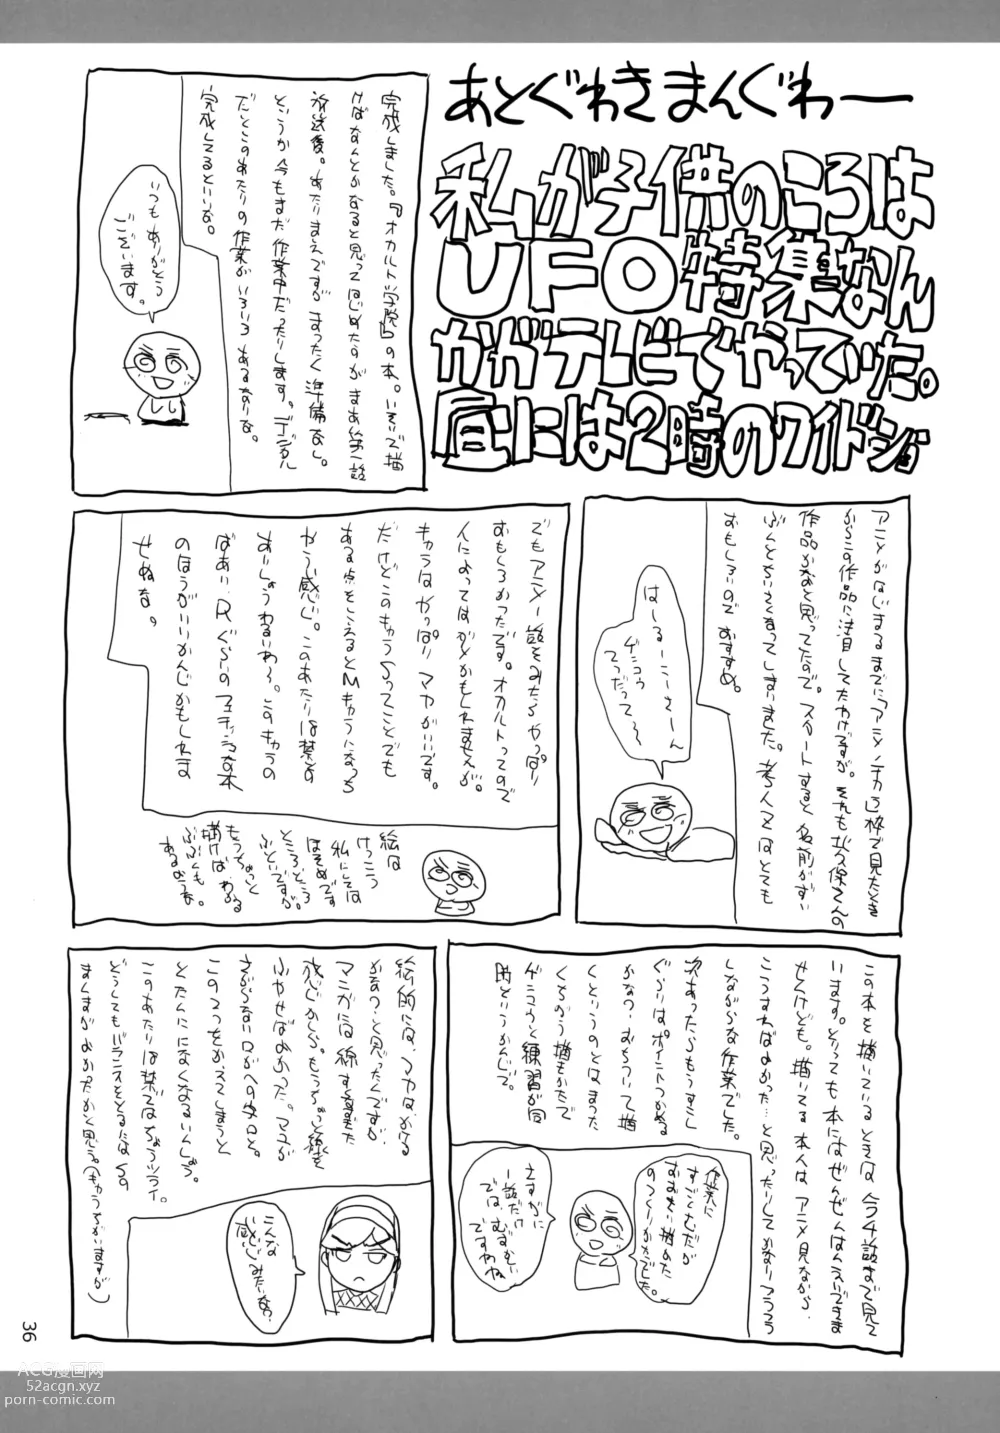 あとぐわきまんぐわー
私が子供のころは
UFO特集なん
かがテレビでやっていた。
昼には2時のワイドショ
完成しました。『オカルト学院』の本。いそいで描
けばなんとかなると思ってはじめたのがまあ第一話
放送後。あたりまえですがまったく準備なし。
というか今もまだ作業中だったりします。デジタル
だとこのあたりの作業がいろいろあるなりな。
完成してるといいな。
いつもありがとう
ございます。
アニメがはじまるまでに「アニメノチカラ」枠で見たとき
からこの作品に注目してたわけですが。それも
作品かなと思ってたので。スタートすると名前がすい
ぶんとかいたくなってしまいました。
おもしろいのでおすすめ。
はーるーこーさーん
ゲンコウ
てつだって～
でもアニメ一話をみたらやっぱり
おもしろかったです。オカルトってので
人によってはダメかもしれませんが。
キャラはやっぱりマヤがいいです。
だけどこのキャラSってことでも
ある点をこえるとMキャラになっち
やう感じ。このあたりは禁書の
あいしょうわるいわ～。このキャラの
ばあい、Rぐらいのフェチッシュな本
のほうがいいかんじかもしれま
せぬな。
絵は
けっこう
私にしては
ほそめです
ところどころ
ふといですが。
もうちょっと
描けばわかる
ぶぶんも
あるかもな。
この本を描いているときは今4話まで見て
います。とっても本にはぜんぜんはんえいできま
せんけども。描いてる本人はアニメ見ながら、
こうすればよかった…と思ったりしてかなりフラフラ
しながらな作業でした。
次あったらもうすこし
ぐらいはポイントつかめる
かなっ。おちついて描
くというのとはまった
くちがう描きかたで
ゲンコウと練習が同
時というかんじで。
作業に
すごくむだが
おおい描きかた
のつくりかたでした。
さすがに
一話だけ
では、むずかしい
ですわね
絵的には、マヤはかなる
かなっ、と思ったんですが、
マンガには線する真また
感じかしら。もうちょっと線を
ふやせばよかった。マユが
さがらない口がへの字口と。
この2つをかえてしまうと
とたんになくなるいんしょう。
このあたりは禁ではちょいツライ。
どうしてもバランスをとるならSの
ままがよかったかと思う。(キャラちがいますが)
こんな
感じみたいな?
36
ACG漫画网
52acgn.xyz
porn-comic.com